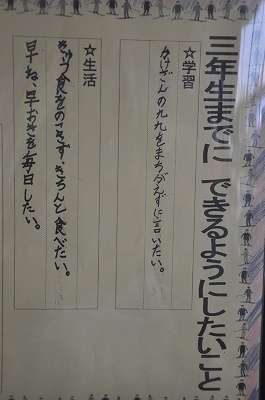 三年生までに できるようにしたいこと
☆学習
かけざんの九九をまちがえずに言いたい。
☆生活
きゅう食をのこさず、きちんと食べたい。
早ね、早おきを毎日したい。